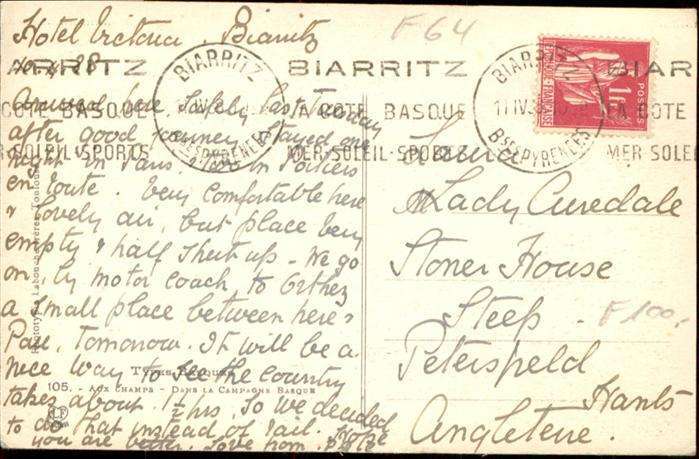 Hotel Victoria. Biarritz
F64
BIARRITZ
BIARRITZ
LA COTE BASQUE
MER-SOLEIL-SPORTS
BIARRITZ
BSES PYRENEES
BIARRITZ
BSES PYRENEES
POSTES
1F
Arrived here safely last Tuesday
after good journey, stayed one
night in Paris in Poitiers
en route. Very comfortable here
& lovely air, but place very
empty & half shut up - We go
on, by motor coach, to Orthez
a small place between here &
Pau, tomorrow. It will be a
nice way to see the country
takes about 1½ hrs, so we decided
to do that instead of rail. Hope
you are better. Love from
France
Lady
Stoner House
Steep.
Petersfield
Hants
Angleterre.
F100,-
TYPES BASQUES
105. - AUX CHAMPS - DANS LA CAMPAGNE BASQUE